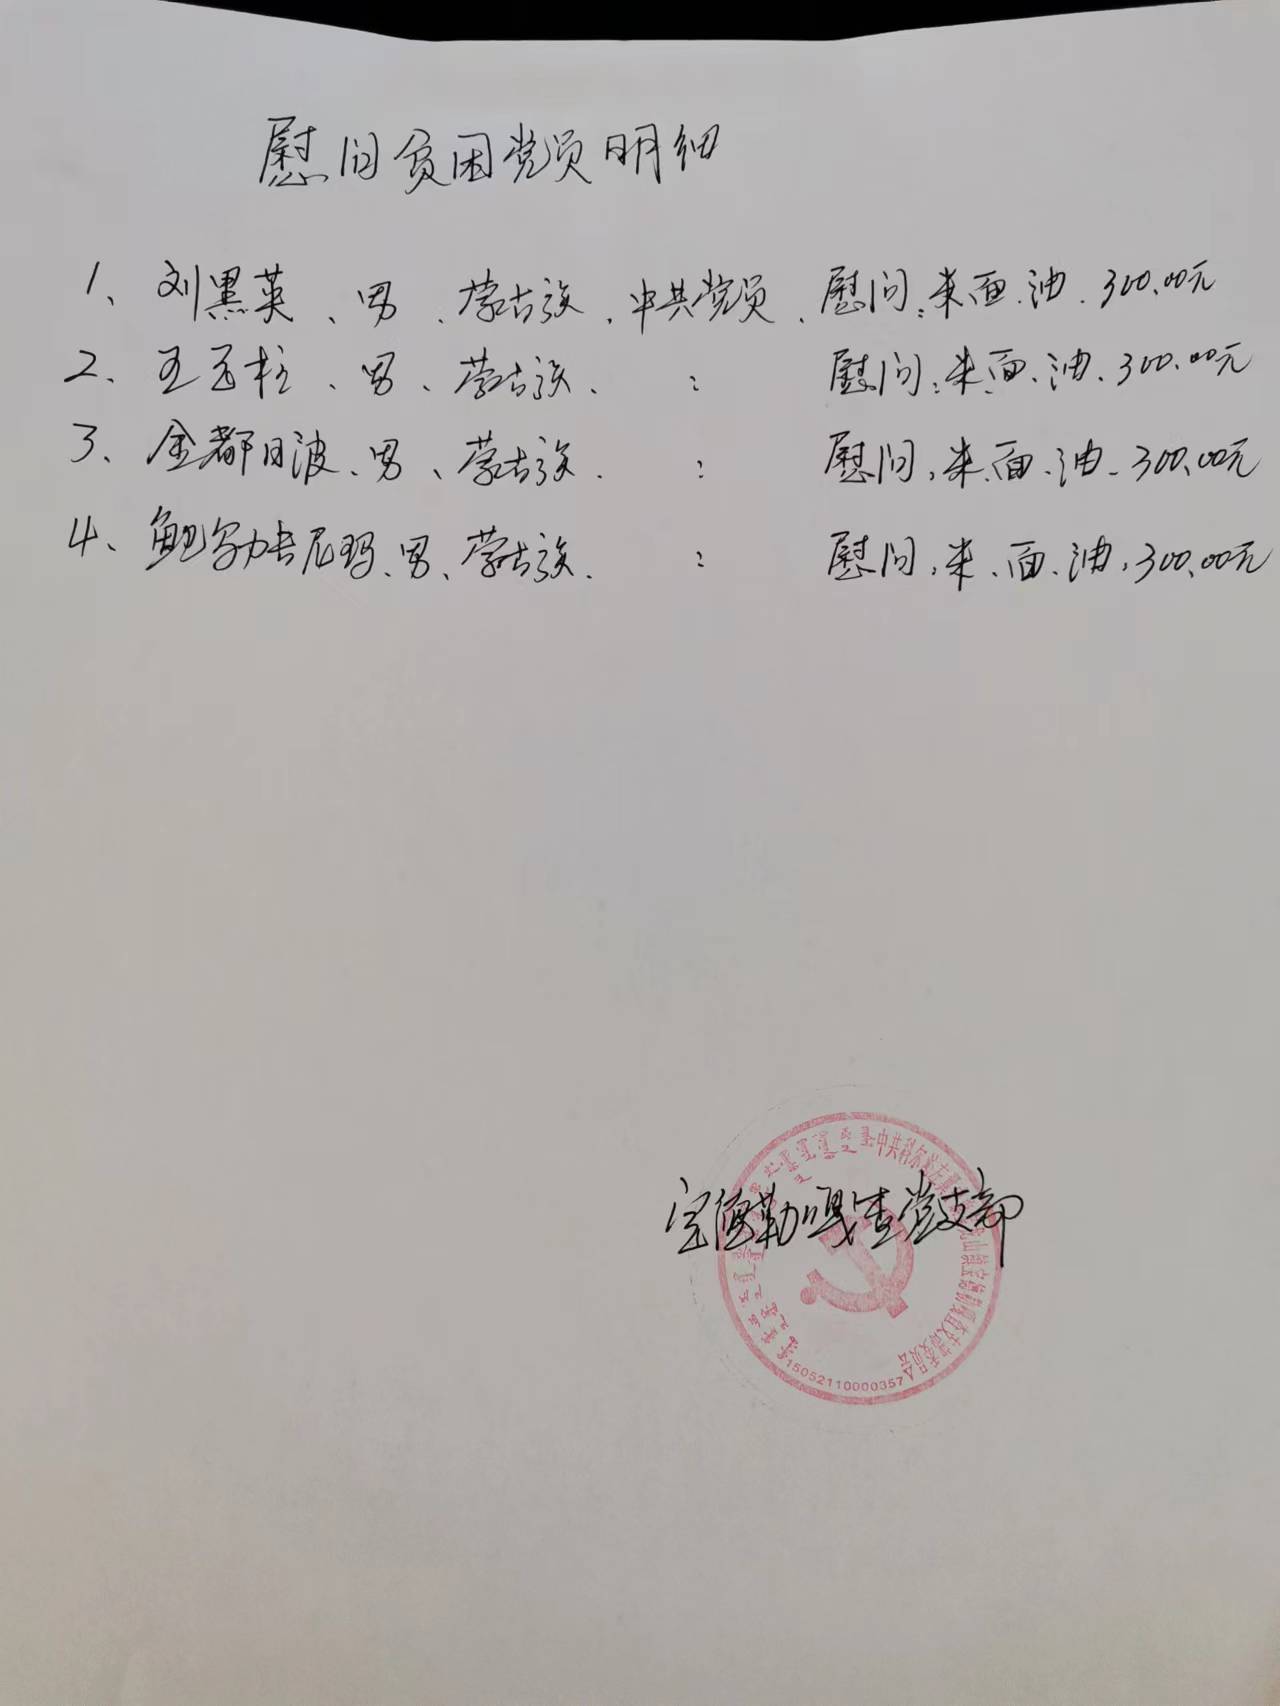 慰问贫困党员明细
1、刘黑英、男、蒙古族、中共党员、慰问:米面、油、300.00元
2、王玉柱、男、蒙古族、 : 慰问:米、面、油、300.00元
3、金都日波、男、蒙古族、 : 慰问,米、面、油、300.00元
4、鲍尼玛、男、蒙古族、 : 慰问,米、面、油,300.00元
宝德勒嘎查党支部
中共科尔沁左翼
15052110000357